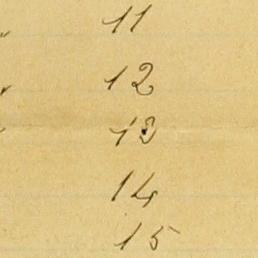 11
12
13
14
15